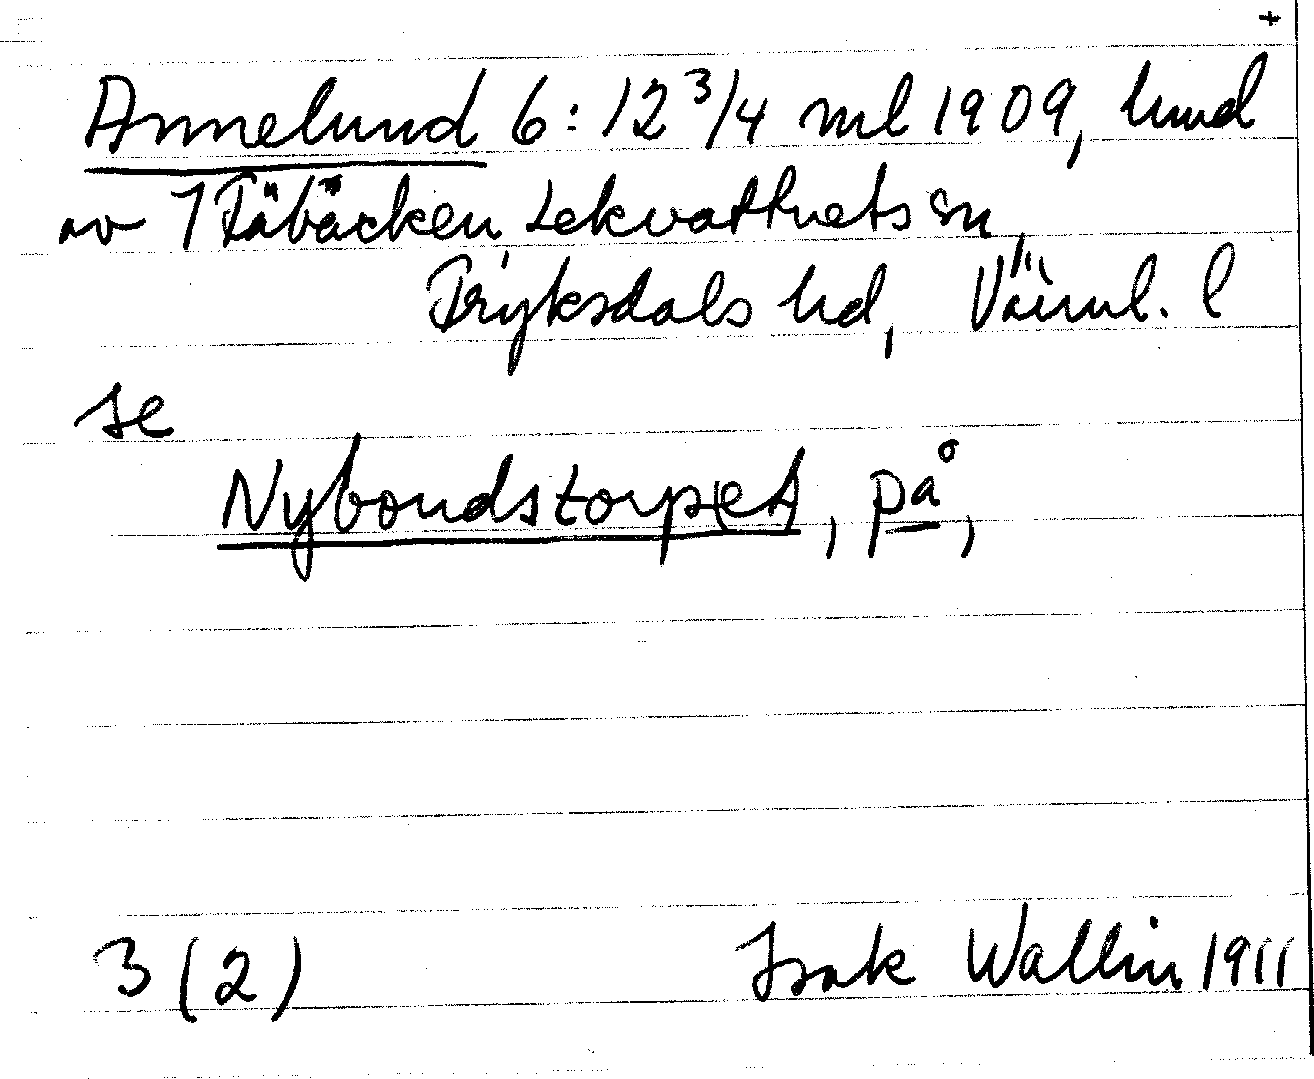 +
Annelund 6:12 3/4 ml 1909, hmd
av 1 Fäbäcken Lekvattnets sn,
Fryksdals hd, Värml. l
se
Nybondstorp(et), på,
3 (2) Isak Wallin 1911